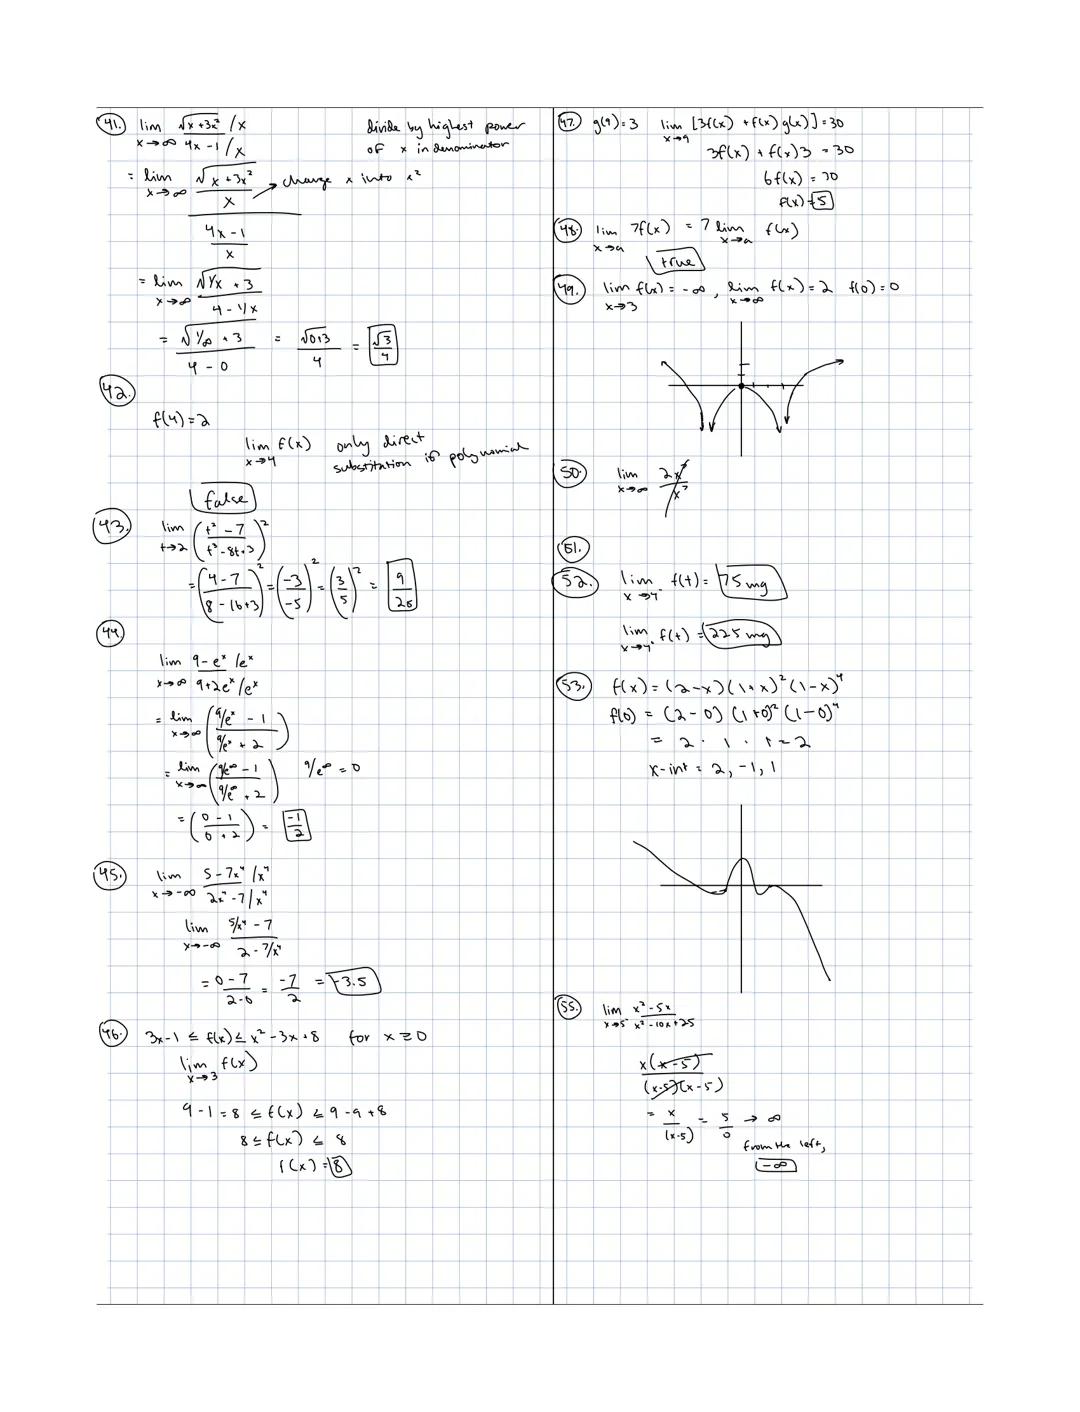 41. lim x→∞ √x+3x² /x / 4x-1 /x
divide by highest power
of x in denominator
= lim x→∞ √x+3x² / x / 4x-1 / x → change x into x²
= lim x→∞ √1/x + 3 / 4 - 1/x
= √1/∞ + 3 / 4 - 0 = √0+3 / 4 = √3 / 4
42.
f(4)=2
lim x→4 f(x) only direct
substitution if polynomial
false
43. lim t→2 (t²-7 / t³-8t+3)²
= (4-7 / 8-16+3)² = (-3/-5)² = (3/5)² = 9/25
44.
lim x→∞ 9-eˣ /eˣ / 9+2eˣ /eˣ
= lim x→∞ (9/eˣ - 1 / 9/eˣ + 2)
= lim x→∞ (9/e^∞ - 1 / 9/e^∞ + 2) 9/e^∞ = 0
= (0-1 / 0+2) = -1/2
45. lim x→-∞ 5-7x⁴ /x⁴ / 2x⁴-7 /x⁴
lim x→-∞ 5/x⁴ - 7 / 2 - 7/x⁴
= 0-7 / 2-0 = -7/2 = -3.5
46. 3x-1 ≤ f(x) ≤ x²-3x+8 for x≥0
lim x→3 f(x)
9-1=8 ≤ f(x) ≤ 9-9+8
8 ≤ f(x) ≤ 8
f(x)=8
47. g(9)=3 lim x→9 [3f(x) + f(x)g(x)]=30
3f(x) + f(x)3 = 30
6f(x) = 30
f(x)=5
48. lim x→a 7f(x) = 7 lim x→a f(x)
true
49. lim x→3 f(x) = -∞, lim x→∞ f(x)=2 f(0)=0
50. lim x→∞
51.
52. lim x→4⁻ f(t) = 75 mg
lim x→4⁺ f(t) = 225 mg
53. f(x) = (2-x)(1+x)²(1-x)⁴
f(0) = (2-0)(1+0)²(1-0)⁴
= 2 · 1 · 1 = 2
x-int = 2, -1, 1
55. lim x→5⁻ x²-5x / x²-10x+25
x(x-5) / (x-5)(x-5)
= x / (x-5) = 5/0 → ∞
from the left,
-∞